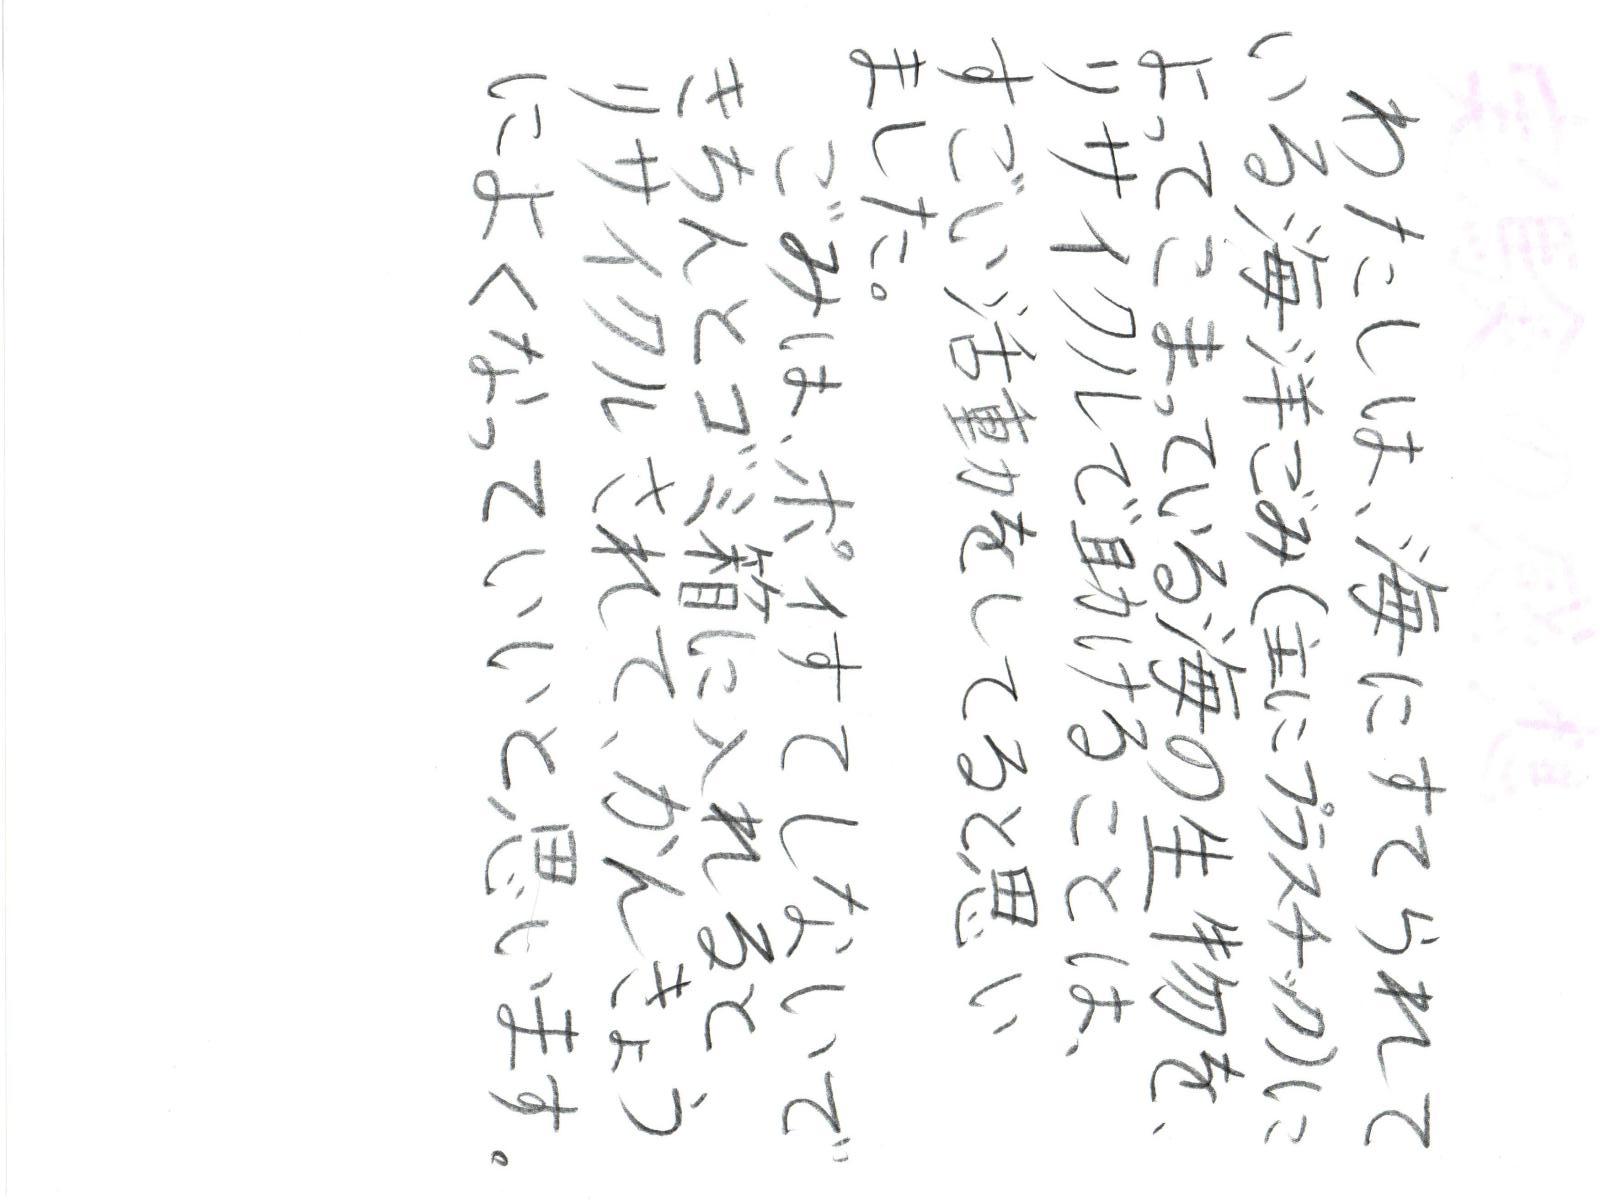 わたしは、海にすてられて
いる海洋ごみ(主にプラスチック)に
よってこまっている海の生物を、
リサイクルで助けることは、
すごい活動をしてると思い
ました。
ごみは、ポイすてしないで
きちんとゴミ箱に入れると
リサイクルされて、かんきょう
によくなっていいと思います。